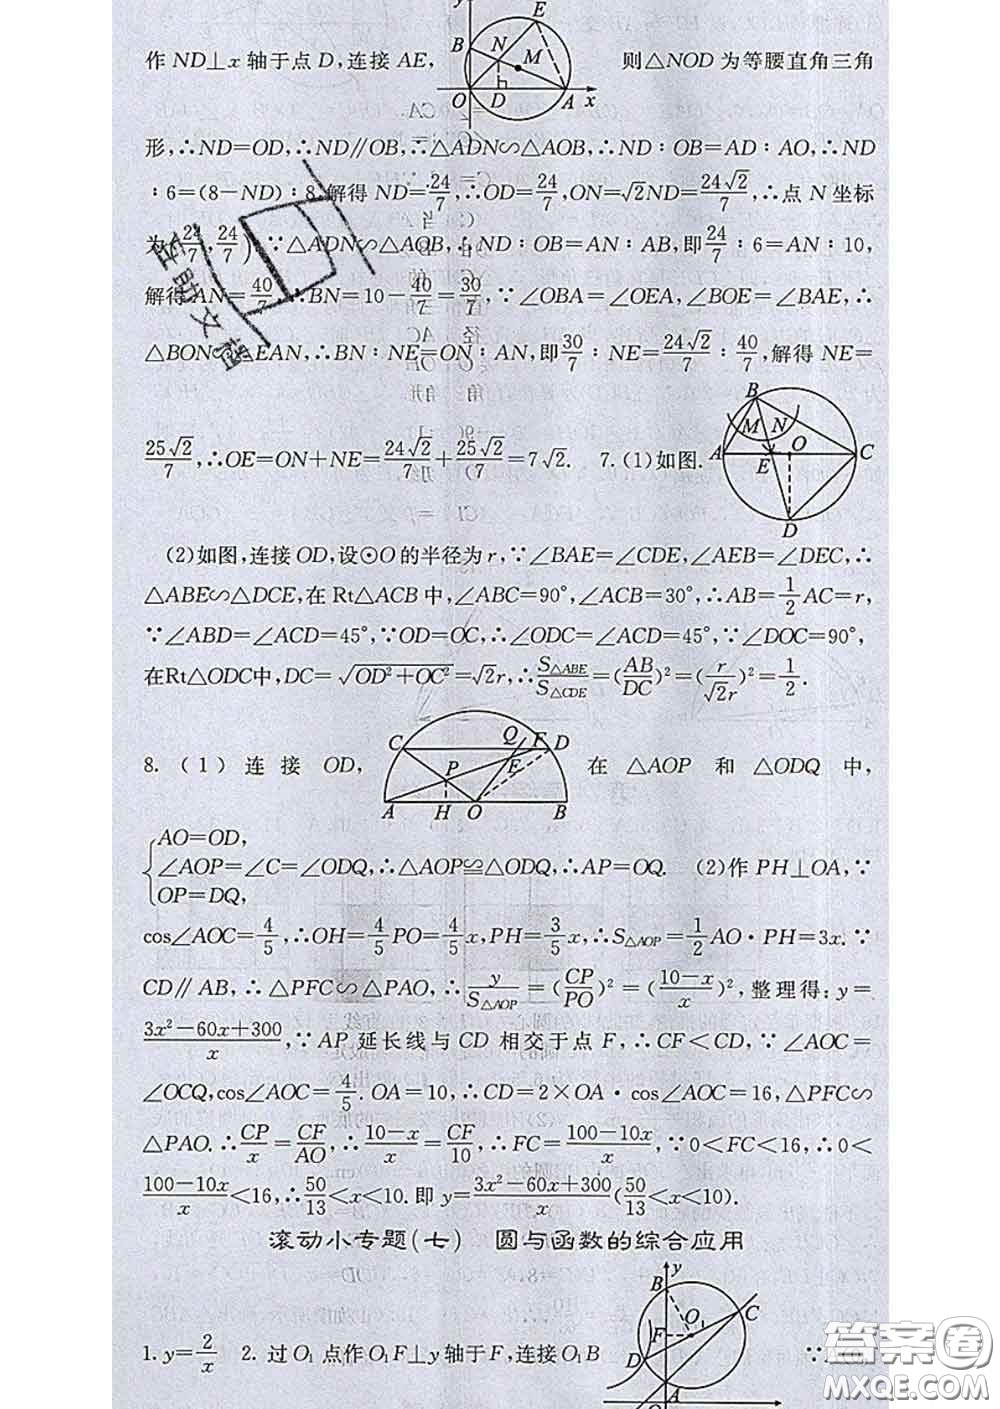 作ND⊥x轴于点D,连接AE, 则△NOD为等腰直角三角
形,∴ND=OD,∴ND∥OB,∴△ADN∽△AOB,∴ND∶OB=AD∶AO,∴ND
∶6=(8-ND)∶8,解得ND=24/7,∴OD=24/7,ON=√2ND=24√2/7,∴点N坐标
为(24/7,24/7).∵△ADN∽△AOB,∴ND∶OB=AN∶AB,即24/7∶6=AN∶10,
解得AN=40/7,∴BN=10-40/7=30/7,∵∠OBA=∠OEA,∠BOE=∠BAE,∴
△BON∽△EAN,∴BN∶NE=ON∶AN,即30/7∶NE=24√2/7∶40/7,解得NE=
25√2/7,∴OE=ON+NE=24√2/7+25√2/7=7√2. 7.(1)如图.
(2)如图,连接OD,设⊙O的半径为r,∵∠BAE=∠CDE,∠AEB=∠DEC,∴
△ABE∽△DCE,在Rt△ACB中,∠ABC=90°,∠ACB=30°,∴AB=1/2AC=r,
∵∠ABD=∠ACD=45°,∵OD=OC,∴∠ODC=∠ACD=45°,∵∠DOC=90°,
在Rt△ODC中,DC=√(OD²+OC²)=√2r,∴S△ABE/S△CDE=(AB/DC)²=(r/√2r)²=1/2.
8.(1)连接OD, 在△AOP和△ODQ中,
AO=OD,
∠AOP=∠C=∠ODQ,∴△AOP≌△ODQ,∴AP=OQ. (2)作PH⊥OA,∵
OP=DQ,
cos∠AOC=4/5,∴OH=4/5PO=4/5x,PH=3/5x,∴S△AOP=1/2AO·PH=3x.∵
CD∥AB,∴△PFC∽△PAO,∴y/S△AOP=(CP/PO)²=((10-x)/x)²,整理得:y=
(3x²-60x+300)/x,∵AP延长线与CD相交于点F,∴CF<CD,∵∠AOC=
∠OCQ,cos∠AOC=4/5.OA=10,∴CD=2×OA·cos∠AOC=16,△PFC∽
△PAO.∴CP/PO=CF/AO,∴(10-x)/x=CF/10,∴FC=(100-10x)/x,∵0<FC<16,∴0<
(100-10x)/x<16,∴50/13<x<10.即y=(3x²-60x+300)/x(50/13<x<10).
滚动小专题(七) 圆与函数的综合应用
1.y=2/x 2.过O₁点作O₁F⊥y轴于F,连接O₁B
互助文档
答案圈
MXQE.COM